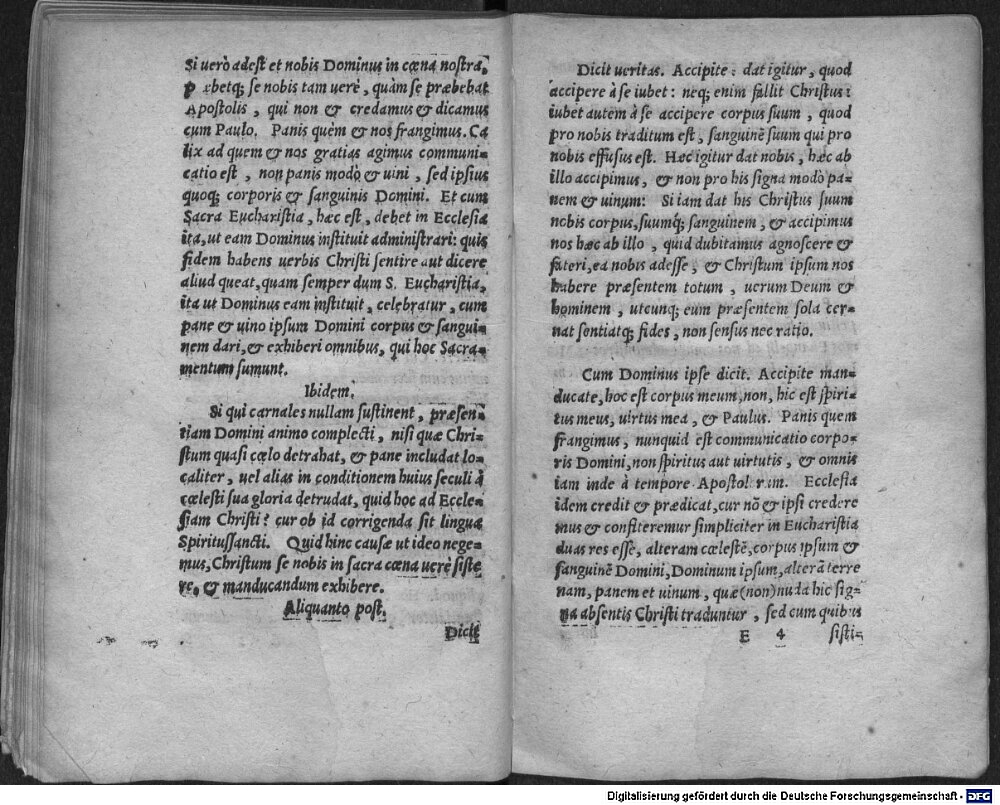 Si uerò adest et nobis Dominus in cœna nostra,
præbetq; se nobis tam uerè, quàm se præbebat
Apostolis, qui non & credamus & dicamus
cum Paulo. Panis quem & nos frangimus. Ca
lix ad quem & nos gratias agimus communi=
catio est, non panis modò & uini, sed ipsius
quoq; corporis & sanguinis Domini. Et cum
Sacra Eucharistia, hæc est, debet in Ecclesia
ita, ut eam Dominus instituit administrari: quis
fidem habens uerbis Christi sentire aut dicere
aliud queat, quam semper dum S. Eucharistia,
ita ut Dominus eam instituit, celebratur, cum
pane & uino ipsum Domini corpus & sangui=
nem dari, & exhiberi omnibus, qui hoc Sacra=
mentum sumunt.
Ibidem.
Si qui carnales nullam sustinent, præsen=
tiam Domini animo complecti, nisi quæ Chri=
stum quasi cœlo detrahat, & pane includat lo=
caliter, uel alias in conditionem huius seculi à
cœlesti sua gloria detrudat, quid hoc ad Eccle=
siam Christi? cur ob id corrigenda sit lingua
Spiritussancti. Quid hinc causæ ut ideo nege=
mus, Christum se nobis in sacra cœna uerè siste
re, & manducandum exhibere.
Aliquanto post.
Dicit
Dicit ueritas. Accipite: dat igitur, quod
accipere à se iubet: neq; enim fallit Christus:
iubet autem à se accipere corpus suum, quod
pro nobis traditum est, sanguinē suum qui pro
nobis effusus est. Hæc igitur dat nobis, hæc ab
illo accipimus, & non pro his signa modò pa=
nem & uinum: Si iam dat his Christus suum
nobis corpus, suumq; sanguinem, & accipimus
nos hæc ab illo, quid dubitamus agnoscere &
fateri, ea nobis adesse, & Christum ipsum nos
habere præsentem totum, uerum Deum &
hominem, utcunq; eum præsentem sola cer=
nat sentiatq; fides, non sensus nec ratio.
Cum Dominus ipse dicit. Accipite man=
ducate, hoc est corpus meum, non, hic est spiri=
tus meus, uirtus mea, & Paulus. Panis quem
frangimus, nunquid est communicatio corpo=
ris Domini, non spiritus aut uirtutis, & omnis
iam inde à tempore Apostolorum. Ecclesia
idem credit & prædicat, cur nō & ipsi credere
mus & confiteremur simpliciter in Eucharistia
duas res esse, alteram cœlestē, corpus ipsum &
sanguinē Domini, Dominum ipsum, alterā terre
nam, panem et uinum, quæ (non) nuda hic sig=
na absentis Christi traduntur, sed cum quibus
E 4 sisti=
Digitalisierung gefördert durch die Deutsche Forschungsgemeinschaft - DFG